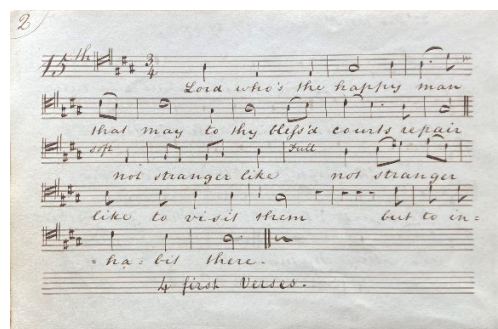 2
15th 3/4
Lord who's the happy man
that may to thy bless'd courts repair
sop Full
not stranger like not stranger
like to visit them but to in=
=ha=bit there.
4 first Verses.